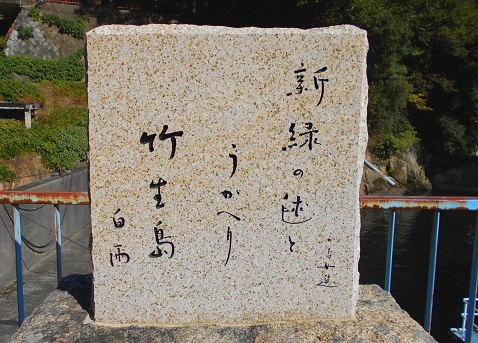 新緑の毬と
うかへり
竹生島
白雨